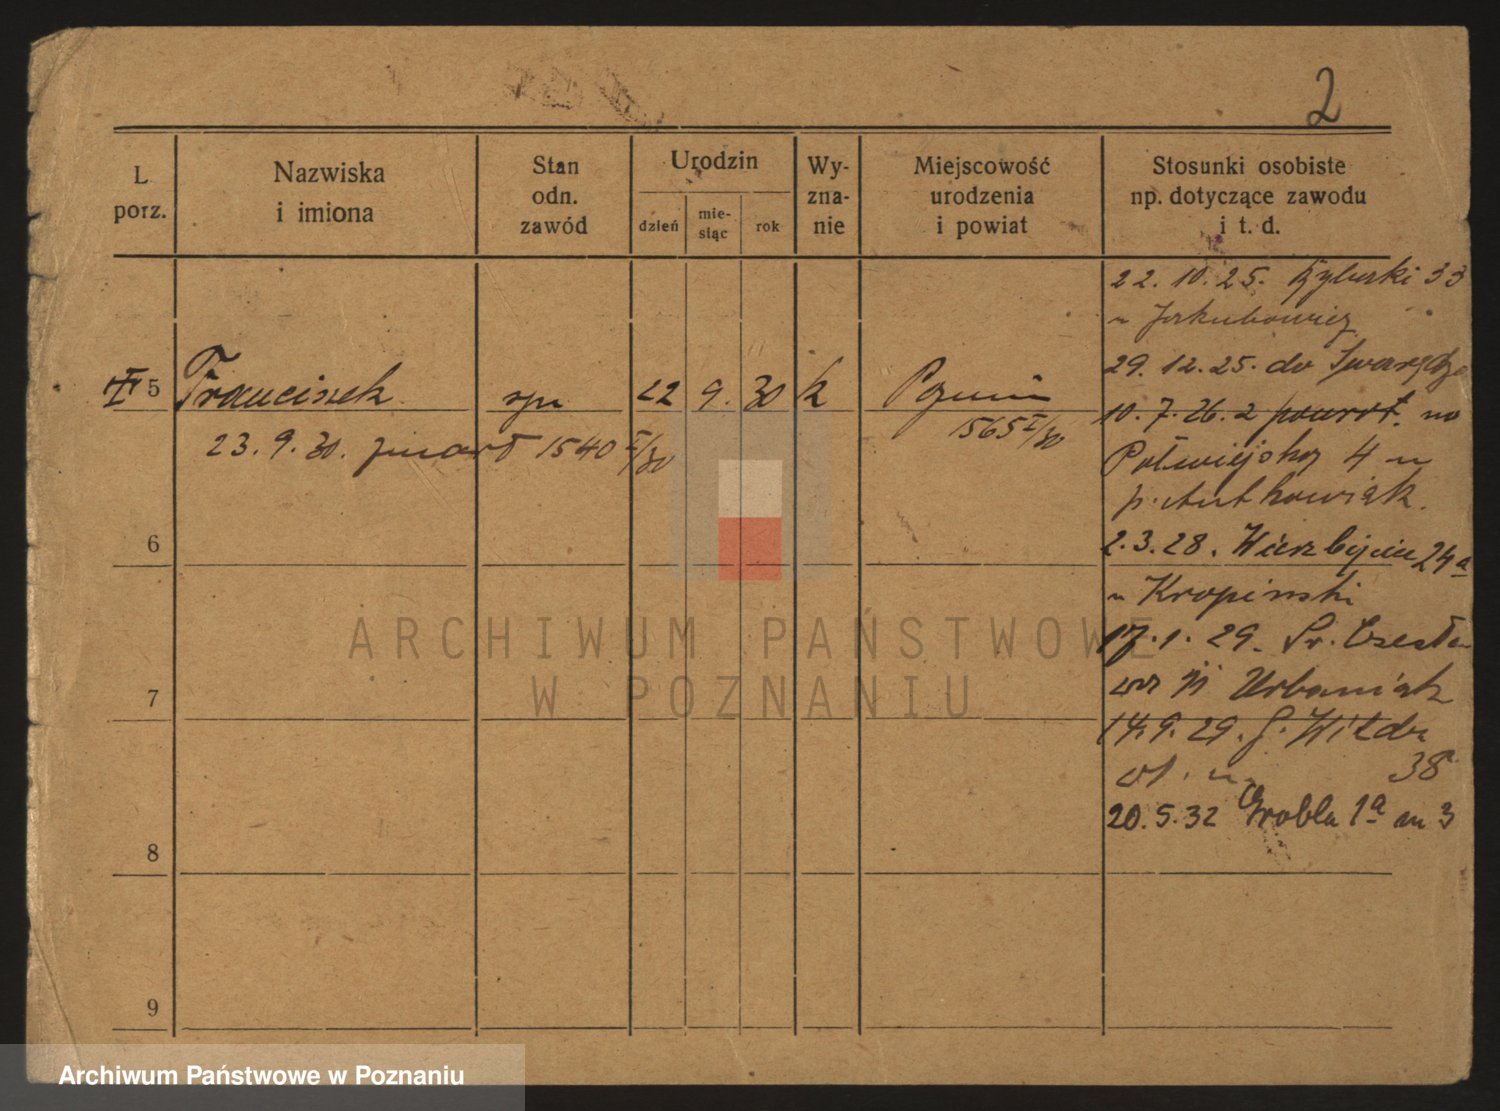 2
L porz.
Nazwiska i imiona
Stan odn. zawód
Urodzin
dzień
mie-siąc
rok
Wy-zna-nie
Miejscowość urodzenia i powiat
Stosunki osobiste np. dotyczące zawodu i t. d.
5 Franciszek syn 22 9. 30 k
1565 I/30
23. 9. 30. zmarł 1540 I/30
6
7
8
9
22. 10. 25. Rybaki 33
u Jakubowicz
29. 12. 25. do Swarzędza
10. 7. 26. z powrot. na
Półwiejską 4 u
p. Antkowiak.
2. 3. 28. Wierzbięcice 24a
u Kropinski
17. 1. 29. Św. Czesła-
wa 11 Urbaniak
14. 9. 29. G. Wilda
38
20. 5. 32 Grobla 1a m 3
ARCHIWUM PAŃSTWOWE
W POZNANIU
Archiwum Państwowe w Poznaniu